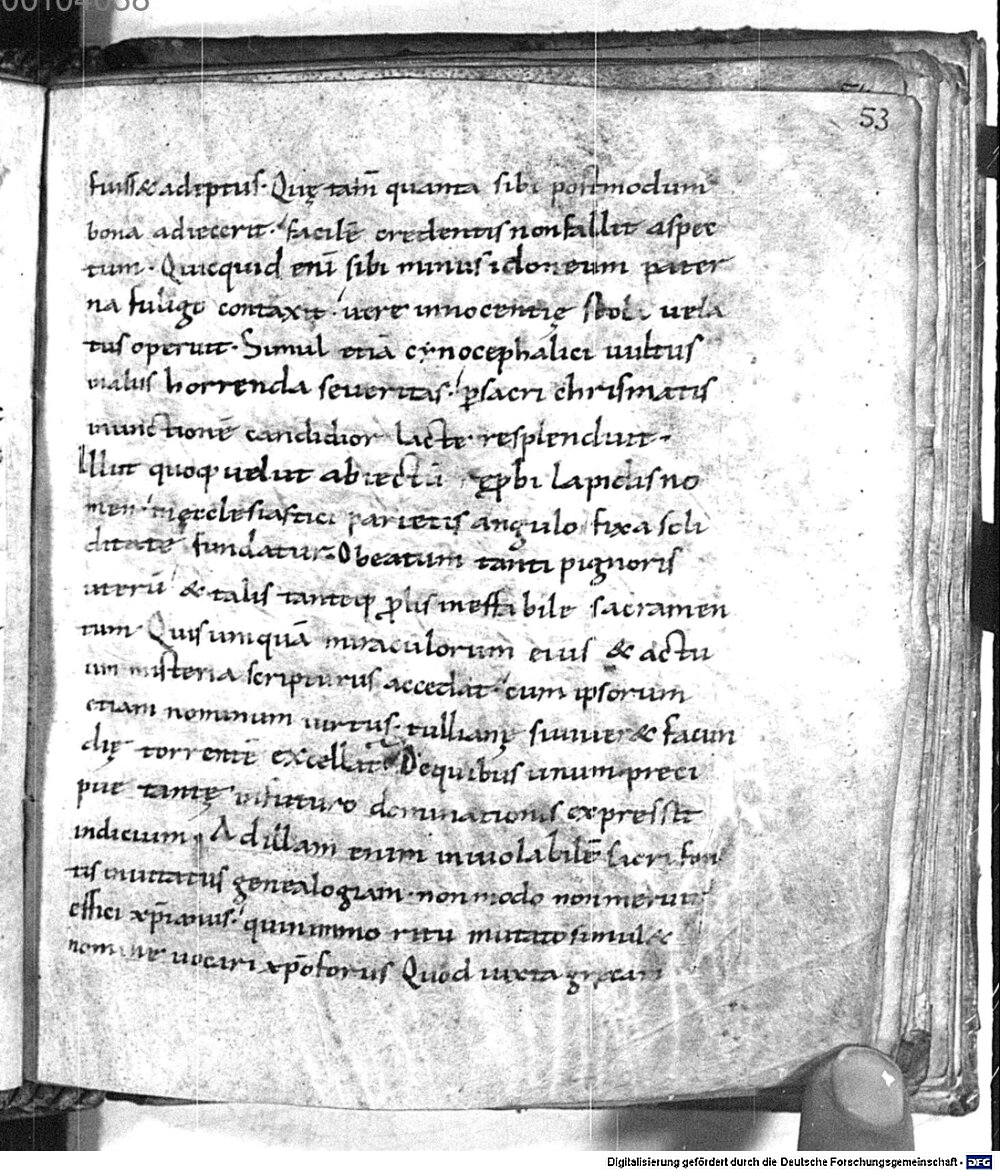 00104058
53
fuiss& adeptus· Quę tam̄ quanta sibi postmodum
bona adiecerit· facilē credentis non fallit aspec
tum· Quicquid enī sibi minus idoneum pater
na fuligo contaxit· vere innocentię stola vela
tus operuit· Simul etiā cynocephalici uultus
horrenda seueritas· p̱sacri chrismatis
inunctionē candidior lacte resplenduit·
Illut quoq uelut abiectū lapidis no
men· inęcclesiastici parietis angulo fixa soli
ditate fundatur· O beatum tanti pignoris
uterū & talis tanteq ꝓlis ineffabile sacramen
tum· Quis umquā miraculorum eius & actu
um misteria scripturus accedat· cum ipsorum
etiam nominum uirtus· tullianę & facun
dię torrentē excellat· De quibus unum preci
pue tantę infuturo dominationis expressit
indicium· Ad illam enim inuiolabilē sacri fon
tis inuitatus genealogiam· non modo non meruit
effici xp̄ianus· quinimmo ritu mutato simul &
nomine uocari xp̄oforus Quod iuxta grecam
Digitalisierung gefördert durch die Deutsche Forschungsgemeinschaft - DFG